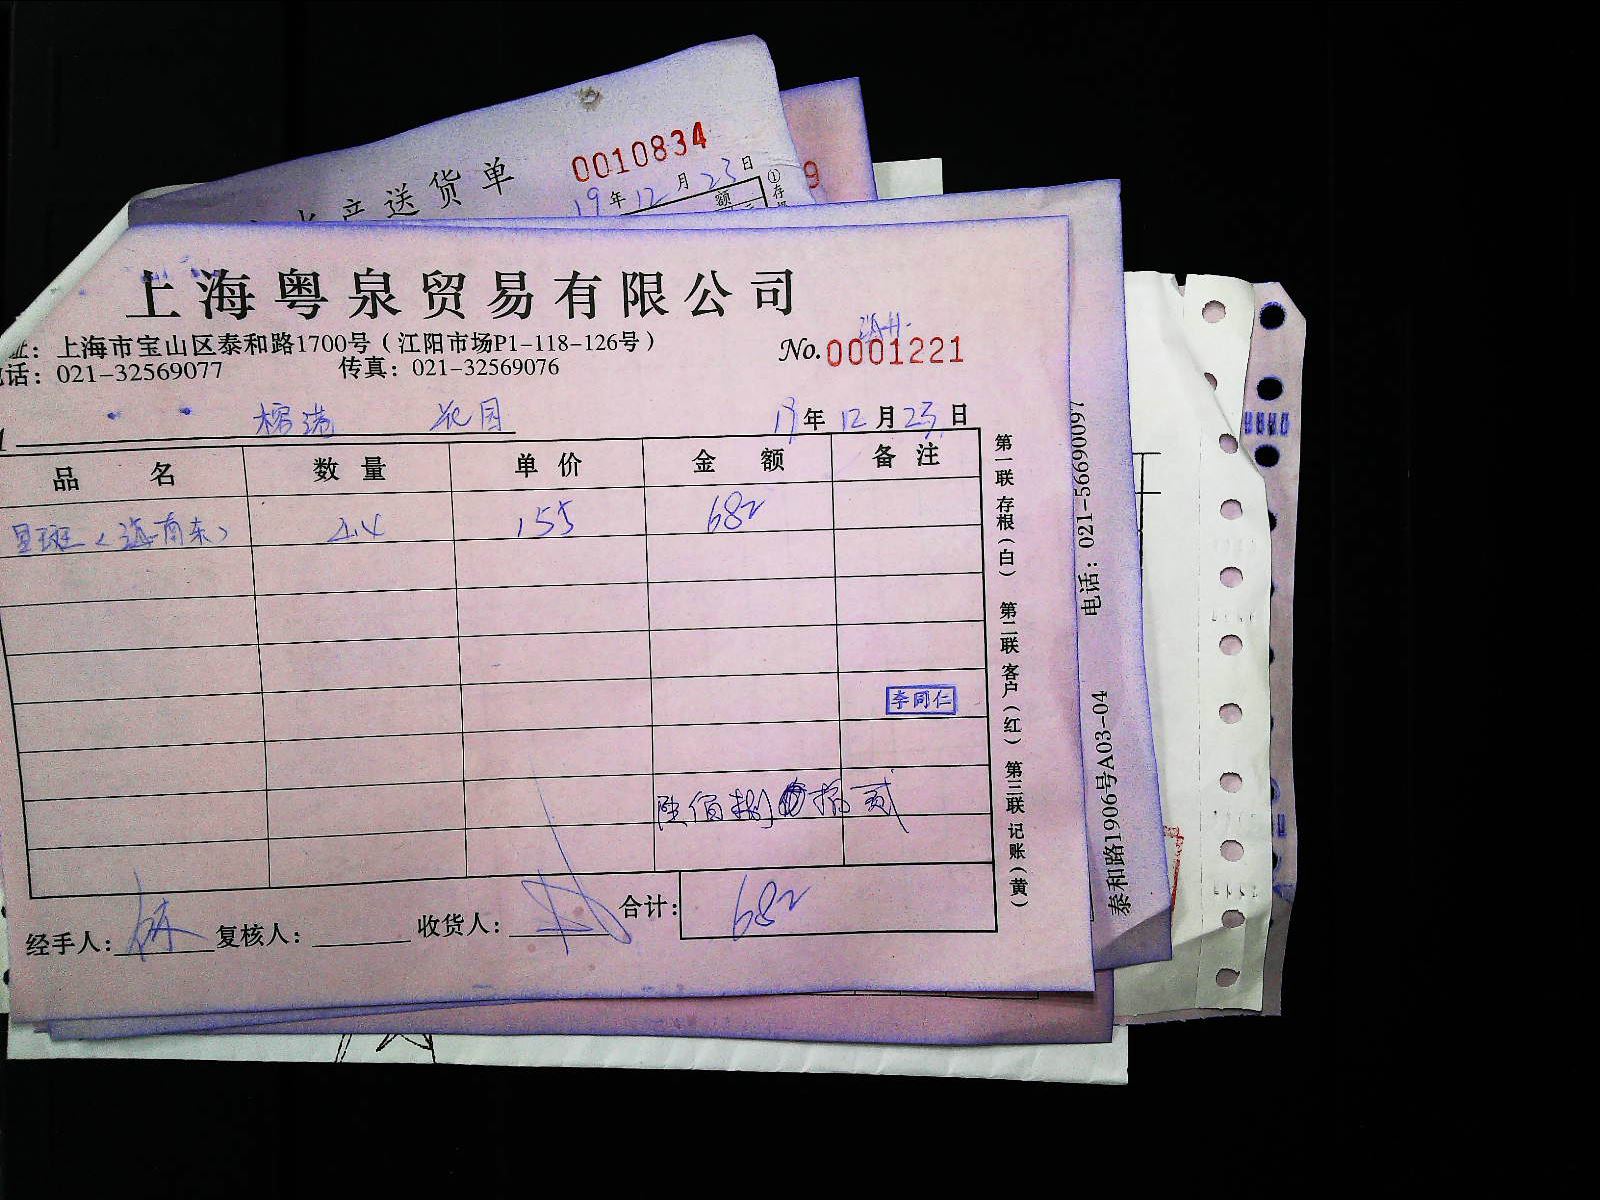 产送货单
0010834
19年12月23日
额
①存
9
上海粤泉贸易有限公司
址：上海市宝山区泰和路1700号（江阳市场P1-118-126号）
电话：021-32569077 传真：021-32569076
No.0001221
榕港 花园
19年12月23日
品 名 数 量 单 价 金 额 备 注
星斑（海南东） 4.4 155 682
李同仁
陆佰捌拾贰
合计：682
经手人： 复核人： 收货人：
第一联 存根（白） 第二联 客户（红） 第三联 记账（黄）
泰和路1906号A03-04 电话：021-56690097